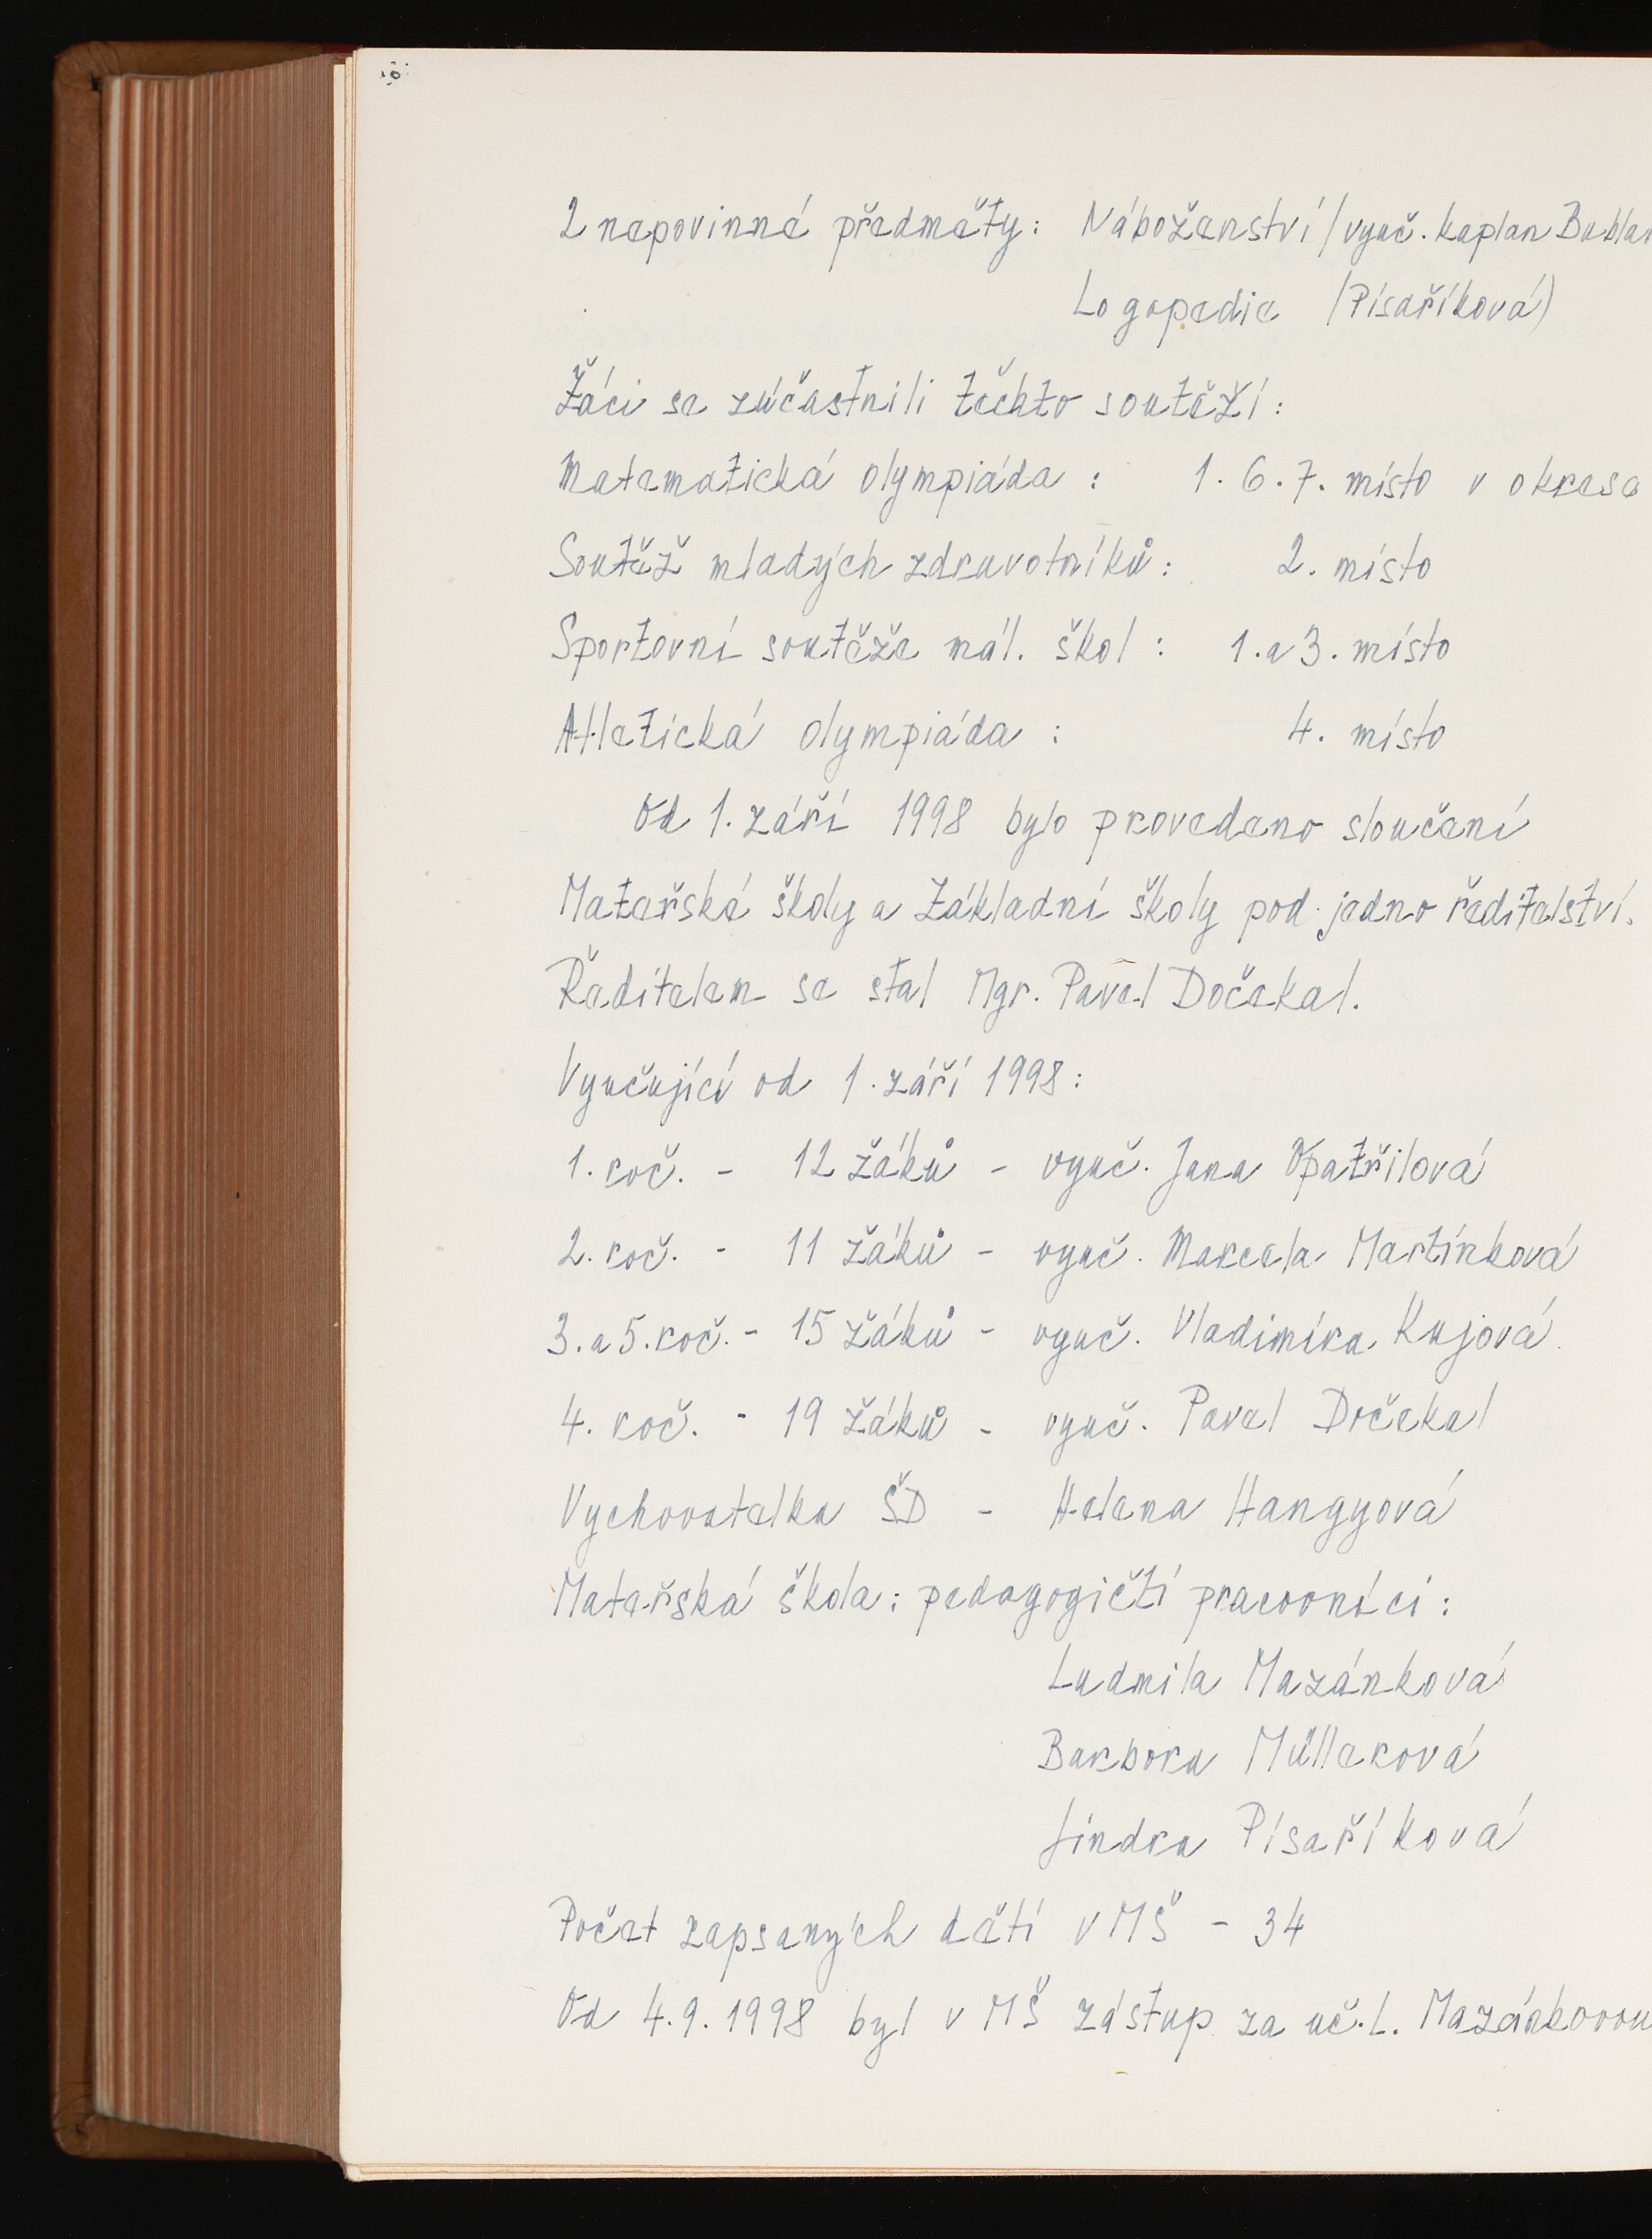 2 nepovinné předměty: Náboženství /vyuč. kaplan Bublan
Logopedie /Písaříková)
Žáci se zúčastnili těchto soutěží:
Matematická olympiáda : 1. 6. 7. místo v okrese
Soutěž mladých zdravotníků: 2. místo
Sportovní soutěže mál. škol : 1. a 3. místo
Atletická olympiáda : 4. místo
Od 1. září 1998 bylo provedeno sloučení
Mateřské školy a Základní školy pod jedno ředitelství.
Ředitelem se stal Mgr. Pavel Dočekal.
Vyučující od 1. září 1998:
1. roč. - 12 žáků - vyuč. Jana Opatřilová
2. roč. - 11 žáků - vyuč. Marcela Martínková
3. a 5. roč. - 15 žáků - vyuč. Vladimíra Kujová
4. roč. - 19 žáků - vyuč. Pavel Dočekal
Vychovatelka ŠD - Helena Hangyová
Mateřská škola: pedagogičtí pracovníci:
Ludmila Mazánková
Barbora Müllerová
Jindra Písaříková
Počet zapsaných dětí v MŠ - 34
Od 4.9.1998 byl v MŠ zástup za uč. L. Mazánkovou